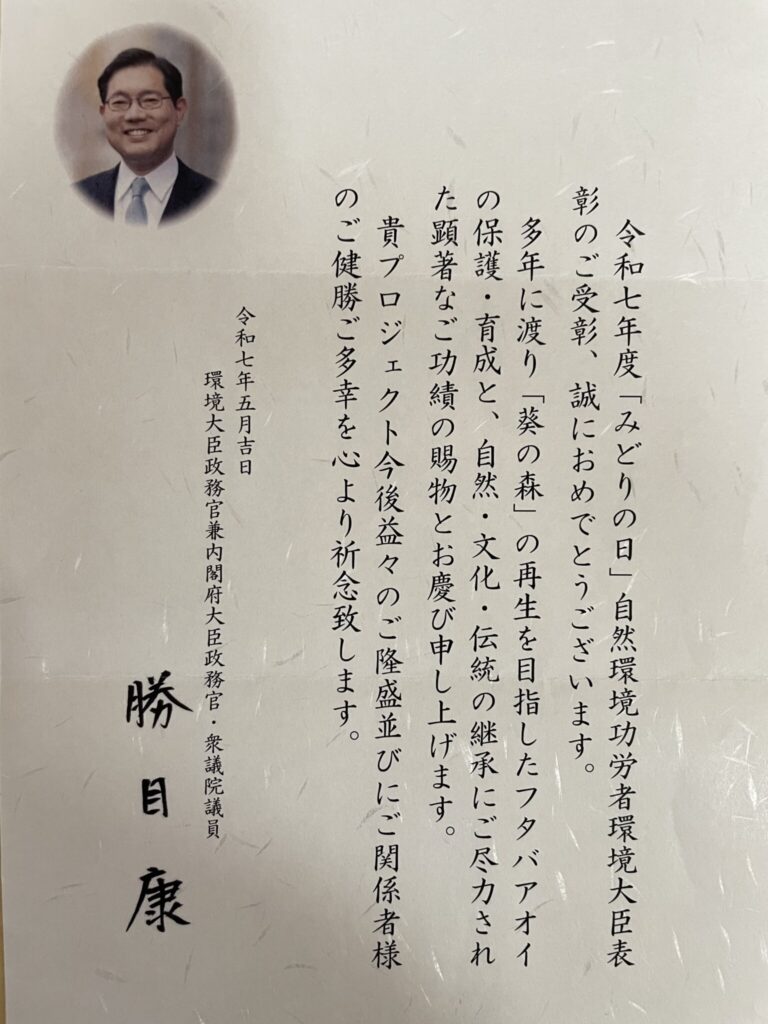 令和七年度「みどりの日」自然環境功労者環境大臣表
彰のご受彰、誠におめでとうございます。
多年に渡り「葵の森」の再生を目指したフタバアオイ
の保護・育成と、自然・文化・伝統の継承にご尽力され
た顕著なご功績の賜物とお慶び申し上げます。
貴プロジェクト今後益々のご隆盛並びにご関係者様
のご健勝ご多幸を心より祈念致します。
令和七年五月吉日
環境大臣政務官兼内閣府大臣政務官・衆議院議員
勝目康